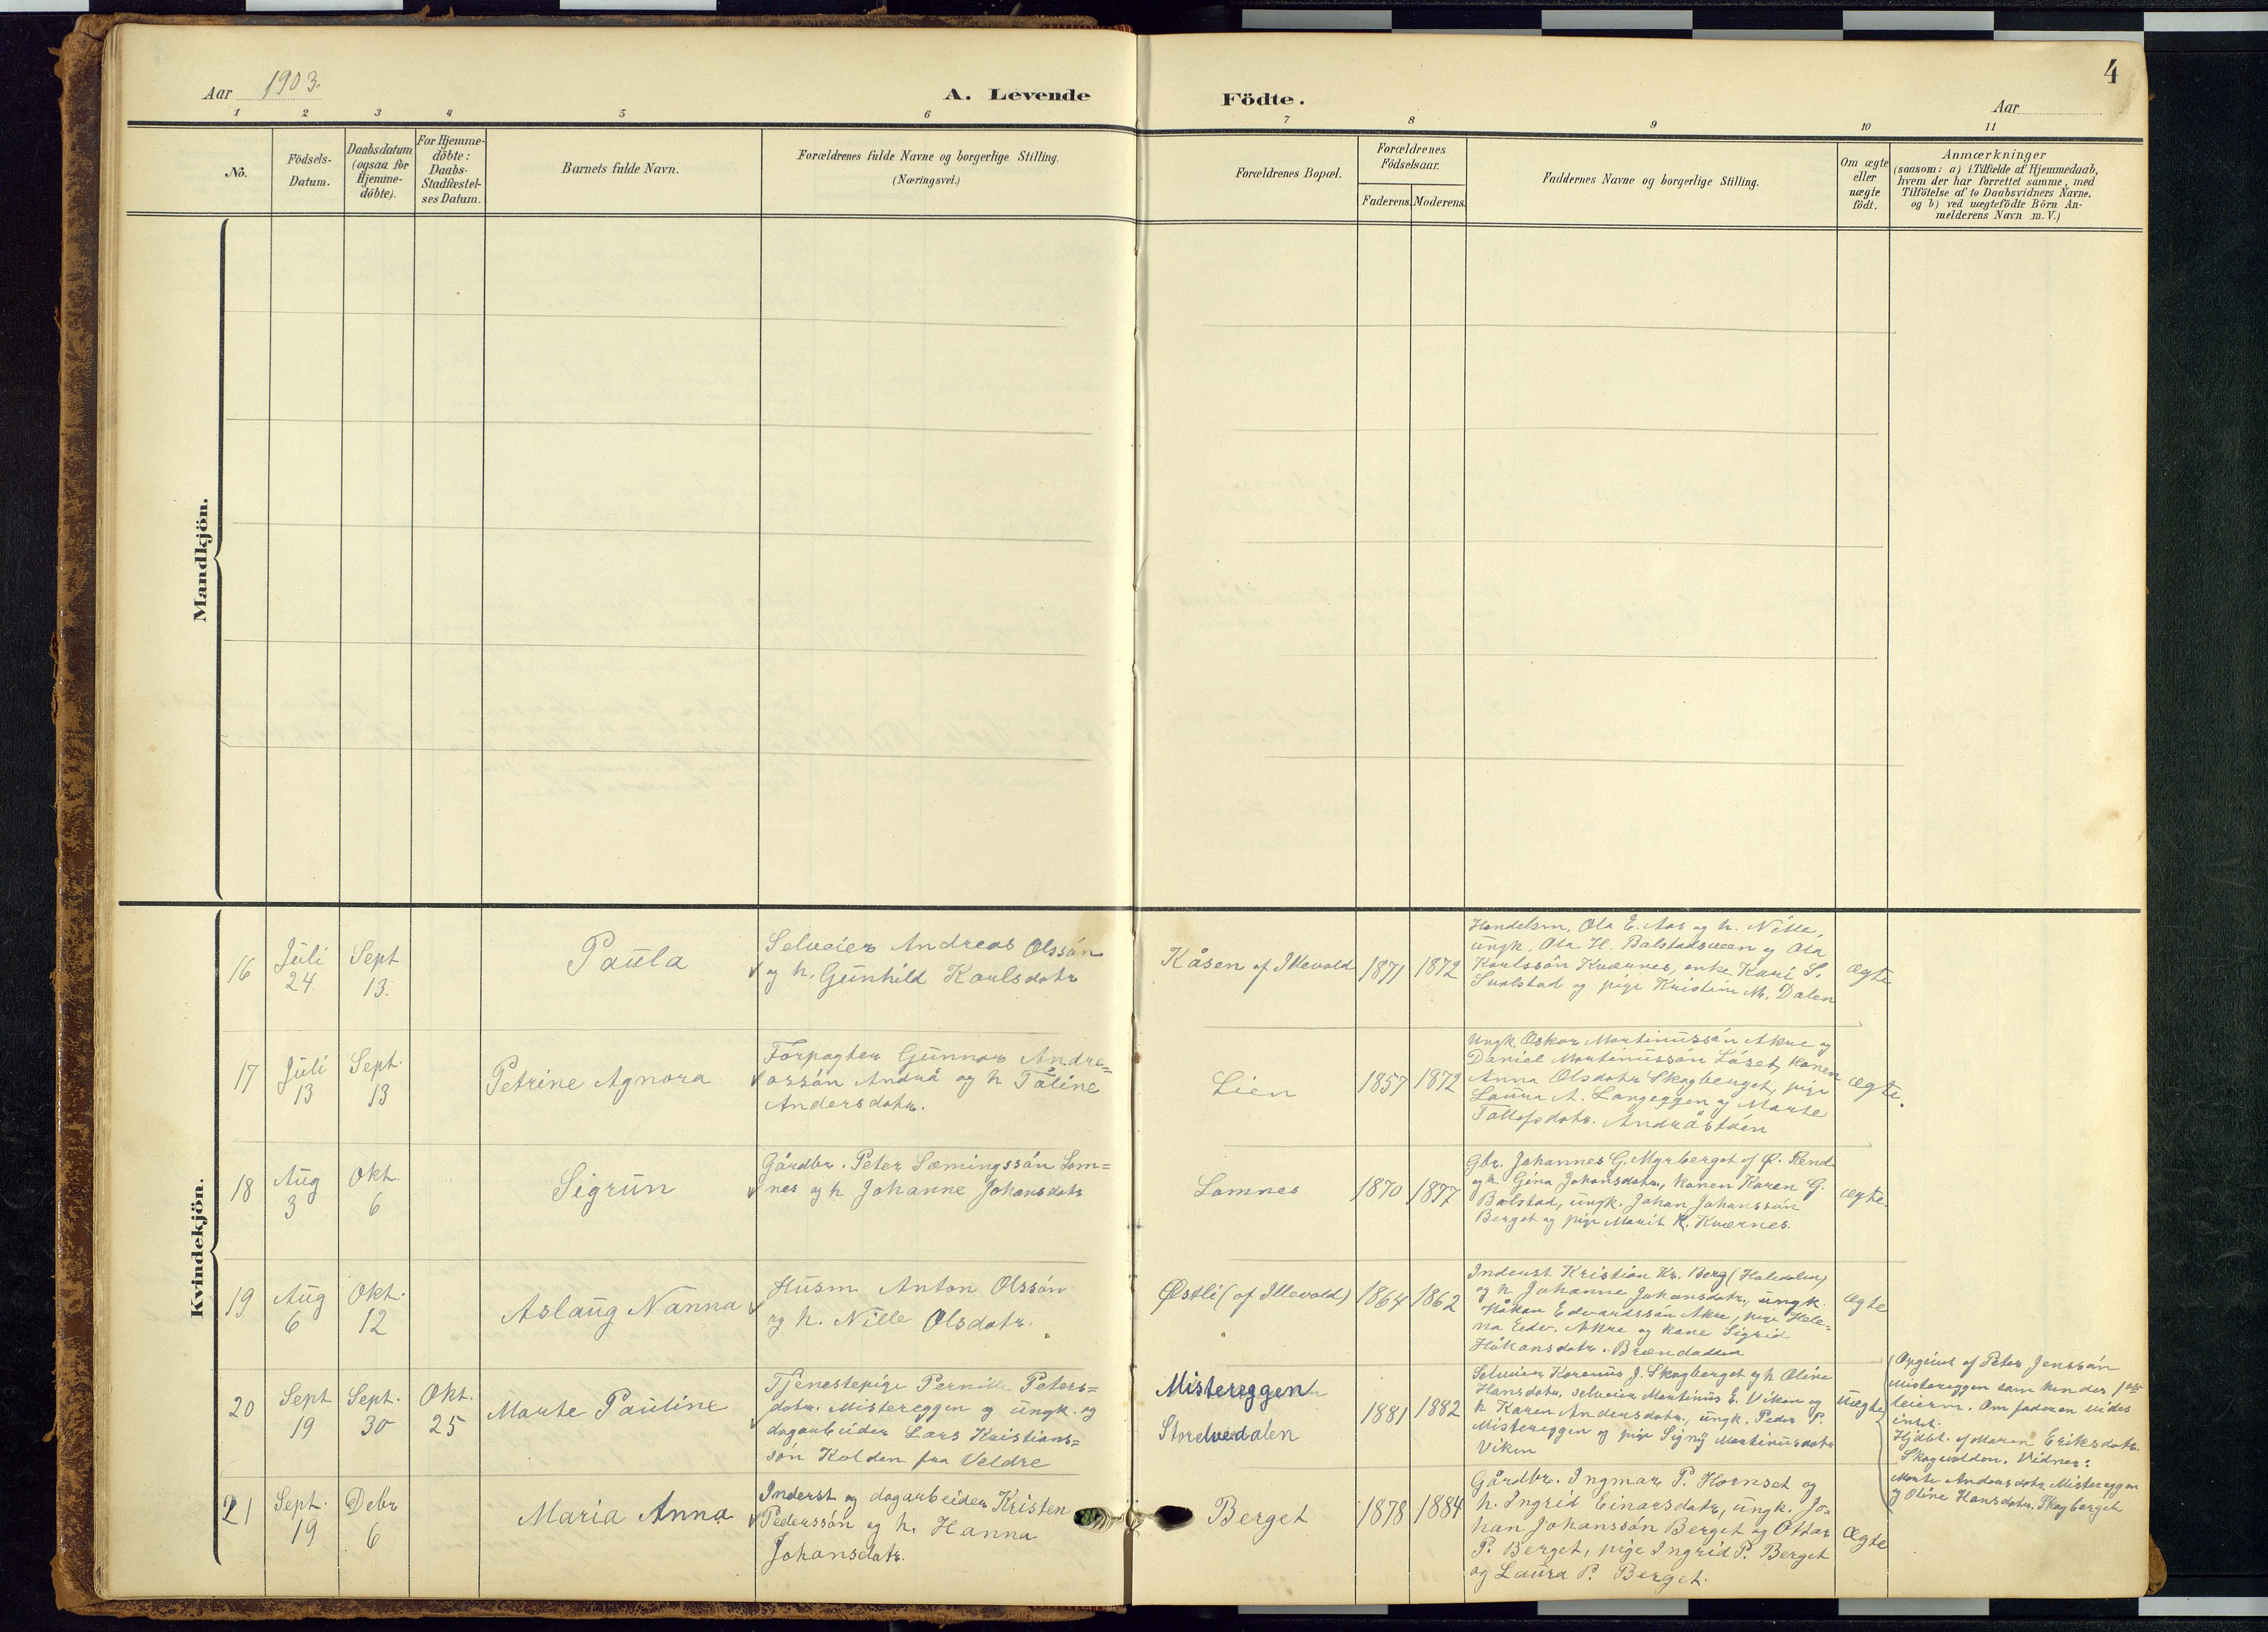 Aar 1903.
A. Levende
Födte.
Aar
4
1 2 3 4 5 6 7 8 9 10 11
No.
Födsels-
Datum.
Daabsdatum
(ogsaa for
Hjemme-
döbte).
For Hjemme-
döbte:
Daabs-
Stadfæstel-
ses Datum.
Barnets fulde Navn.
Forældrenes fulde Navne og borgerlige Stilling.
(Næringsvei.)
Forældrenes Bopæl.
Forældrenes
Födselsaar.
Faderens. Moderens.
Faddernes Navne og borgerlige Stilling.
Om ægte
eller
uægte
födt.
Anmærkninger
(saasom: a) i Tilfælde af Hjemmedaab,
hvem der har forrettet samme, med
Tilföielse af to Daabsvidners Navne.
og b) ved uægtefödte Börn An-
melderens Navn m. V.)
Mandkjön.
Kvindekjön.
16
Juli
24.
Sept
13.
Paula
Selveier Andreas Olssön
og h. Gunhild Karlsdotr
Kåsen af Illevold
1871
1872
Handelsm. Ola E. Aas og h. Nille,
ungk. Ola H. Balstadsveen og Ola
Karlssön Kværnes, enke Kari S.
og pige Kristine M. Dalen
ægte
17
Juli
13
Sept.
13
Petrine Agnora
Forpagter Gunnar Andre-
assön Andrå og h Tåline
Andersdotr.
Lien
1857
1872
Ungk. Oskar Martinussön Akre og
Daniel Martinussön Löset, konen
Anna Olsdotr Skogberget, pige
Laura A. Langeggen og Marte
Tollefsdotr. Andråstöen
ægte.
18
Aug
3
Okt.
6
Sigrun
Gårdbr. Peter Sæmingssön Lom-
nes og h Johanne Johansdotr
Lomnes
1870
1877
Gbr. Johannes G. Myrberget af Ø. Rend.
og h. Gina Johansdotr, konen Karen G.
Balstad, ungk. Johan Johanssön
Berget og pige Marit K. Kværnes.
ægte.
19
Aug
6
Okt.
12
Aslaug Nanna
Husm Anton Olssön
og h. Nille Olsdotr.
Østli (af Illevold)
1864
1862
Inderst Kristian Kr. Berg
og h Johanne Johansdotr, ungk.
Håkon Edvardssön Akre, pige Hele-
na Edv. Akre og kone Sigrid
Håkansdotr.
ægte
20
Sept
19
Sept.
30
Okt.
25
Marte Pauline
Tjenestepige Pernille Peters-
dotr. Mistereggen og ungk. og
dagarbeider Lars Kristians-
sön Kolden fra Veldre
Mistereggen
Storelvedalen
1881
1882
Selveier Korenus J. Skogberget og h Oline
Hansdotr, selveier Martinus E. Viken og
h Karen Andersdotr, ungk. Peder P.
Mistereggen og pige Signy Martinusdotr
Viken
Uægte
Opgivet af Peter Jenssön
Mistereggen som kendes 1ste
leierm. Om faderen vides
intet.
Hjdbt. af Maren Eriksdotr.
Skogvolden. Vidner:
Marte Andersdotr Mistereggen
og Oline Hansdotr. Skogberget
21
Sept.
19
Debr
6
Maria Anna
Inderst og dagarbeider Kristen
Pederssön og h. Hanna
Johansdotr.
Berget
1878
1884
Gårdbr. Ingmar P. Hornset og
h. Ingrid Einarsdotr, ungk. Jo-
han Johanssön Berget og Ottar
P. Berget, pige Ingrid P. Berget
og Laura P. Berget.
Ægte